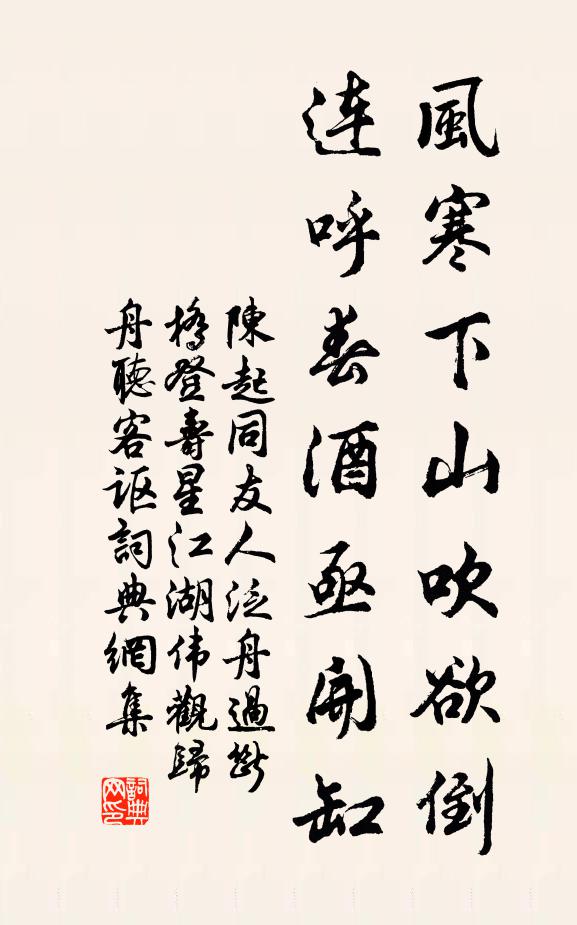 風寒下山吹欲倒
連呼春酒亟開缸
陳起同友人泛舟過斷
橋登壽星江湖伟觀歸
舟聽客讴詞典網集
詞典网印